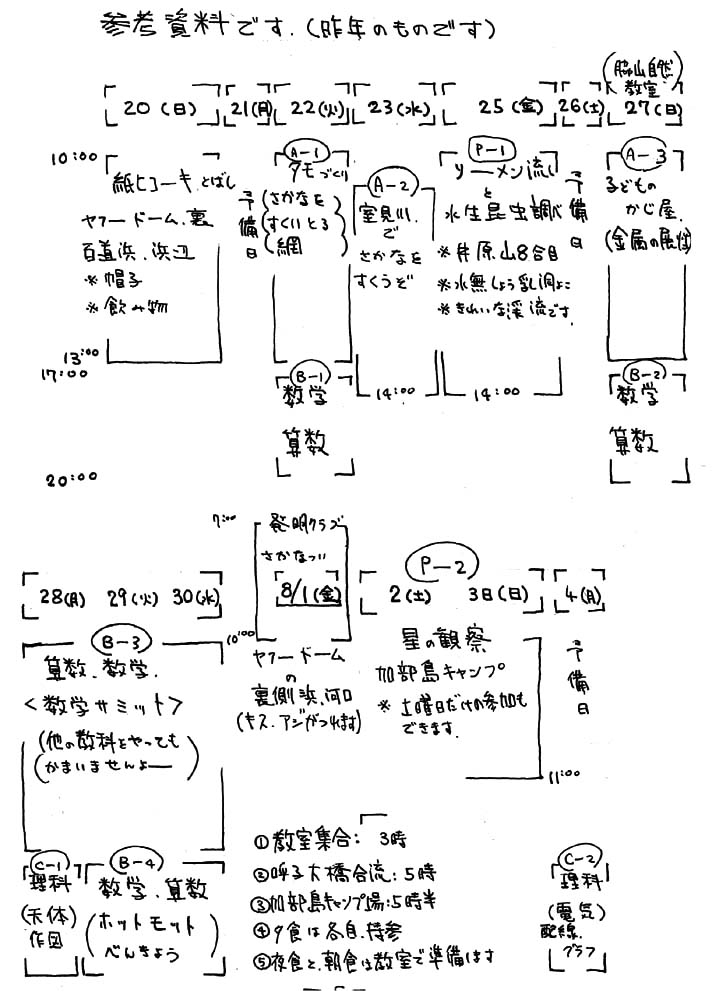 参考資料です.(昨年のものです)
(脇山自然教室)
20(日) 21(月) 22(火) 23(水) 25(金) 26(土) 27(日)
10:00
紙ヒコーキとばし
ヤフードーム裏
百道浜、浜辺
※帽子
※飲み物
13:00
予備日
A-1
タモづくり
(さかなを
すくいとる
網)
A-2
室見川で
さかなを
すくうぞ
14:00
P-1
ソーメン流し
と
水生昆虫調べ
※井原山8合目
※水無しょう乳洞よこ
※きれいな渓流です.
14:00
予備日
A-3
子どもの
かじ屋.
(金属の展性)
17:00
B-1
数学
算数
B-2
数学
算数
20:00
7:00
発明クラブ
さかなつり
28(月) 29(火) 30(水) 8/1(金) 2(土) 3日(日) 4(月)
P-2
B-3
算数、数学.
<数学サミット>
(他の教科をやっても
かまいませんよー)
10:00
ヤフードーム
の
裏側浜、河口
(キス、アジがつれます)
星の観察
加部島キャンプ
※土曜日だけの参加も
できます.
11:00
予備日
C-1
理科
(天体)
作図
B-4
数学、算数
(ホットモット
べんきょう)
①教室集合: 3時
②呼子大橋合流:5時
③加部島キャンプ場:5時半
④夕食は各自.持参
⑤夜食と、朝食は教室で準備します
C-2
理科
(電気)
配線.
グラフ